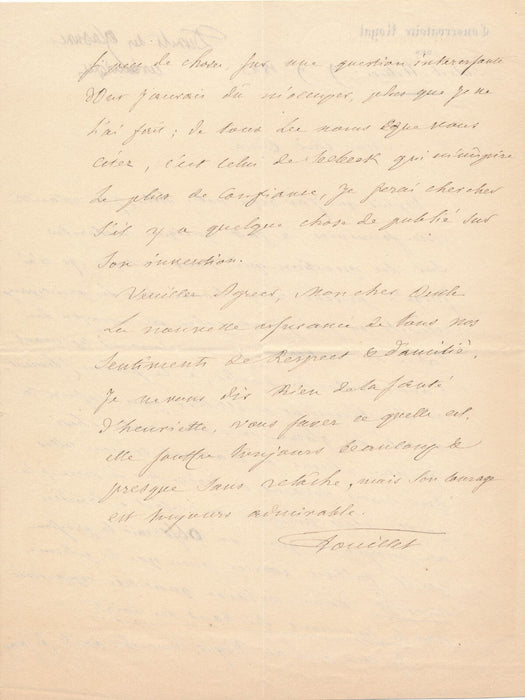 peu de chose, sur une question interessante
dont j'aurais dû m'occuper, plus que je ne
l'ai fait; de tous les noms que vous
citez, c'est celui de Seebeck qui m'inspire
le plus de confiance, je ferai chercher
s'il y a quelque chose de publié sur
son invention.
Veuillez Agréer, mon cher oncle
la nouvelle assurance de tous nos
sentiments de Respect & d'amitié.
Je ne vous dis Rien de la santé
d'henriette, vous savez ce quelle est.
elle souffre toujours beaucoup &
presque sans relache, mais son courage
est toujours admirable.
Pouillet
Conservatoire Royal